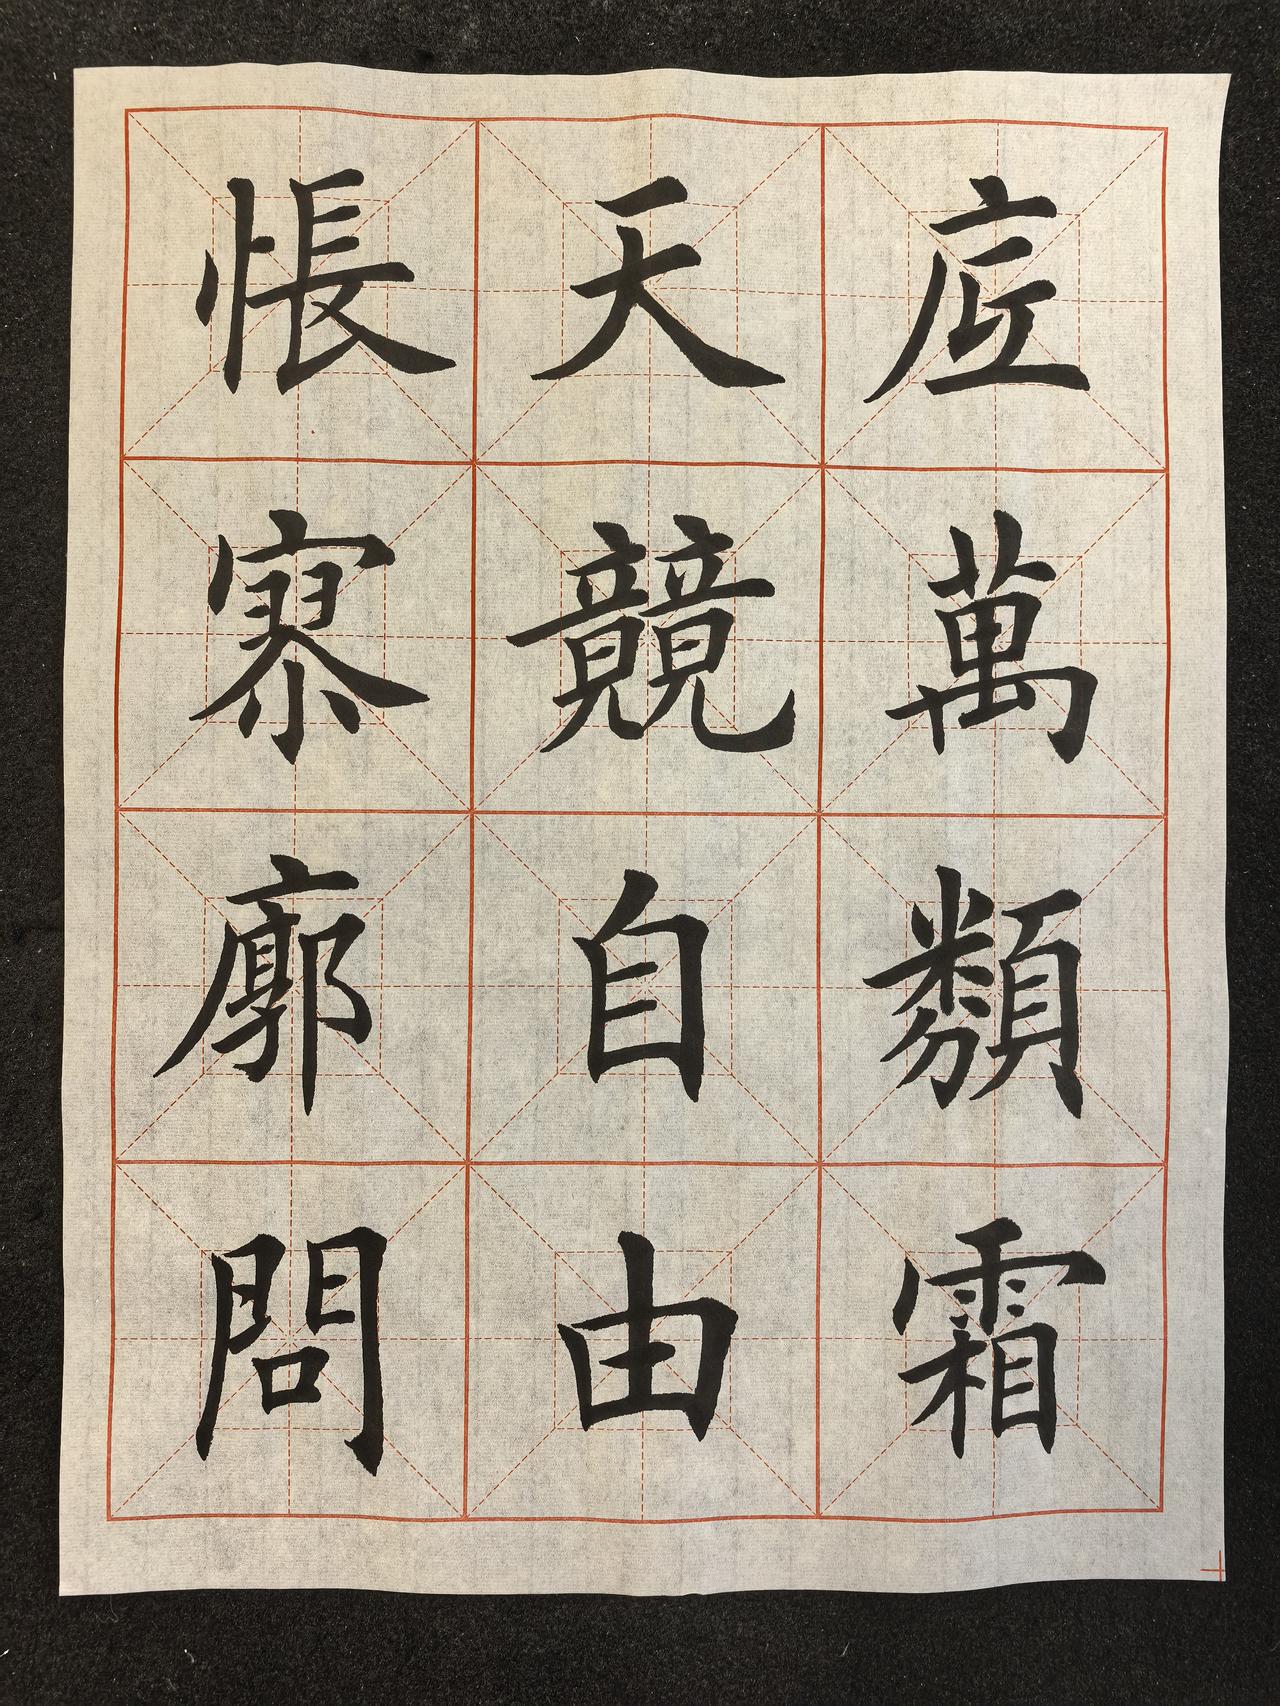 底萬類霜
天競自由
悵寥廓問